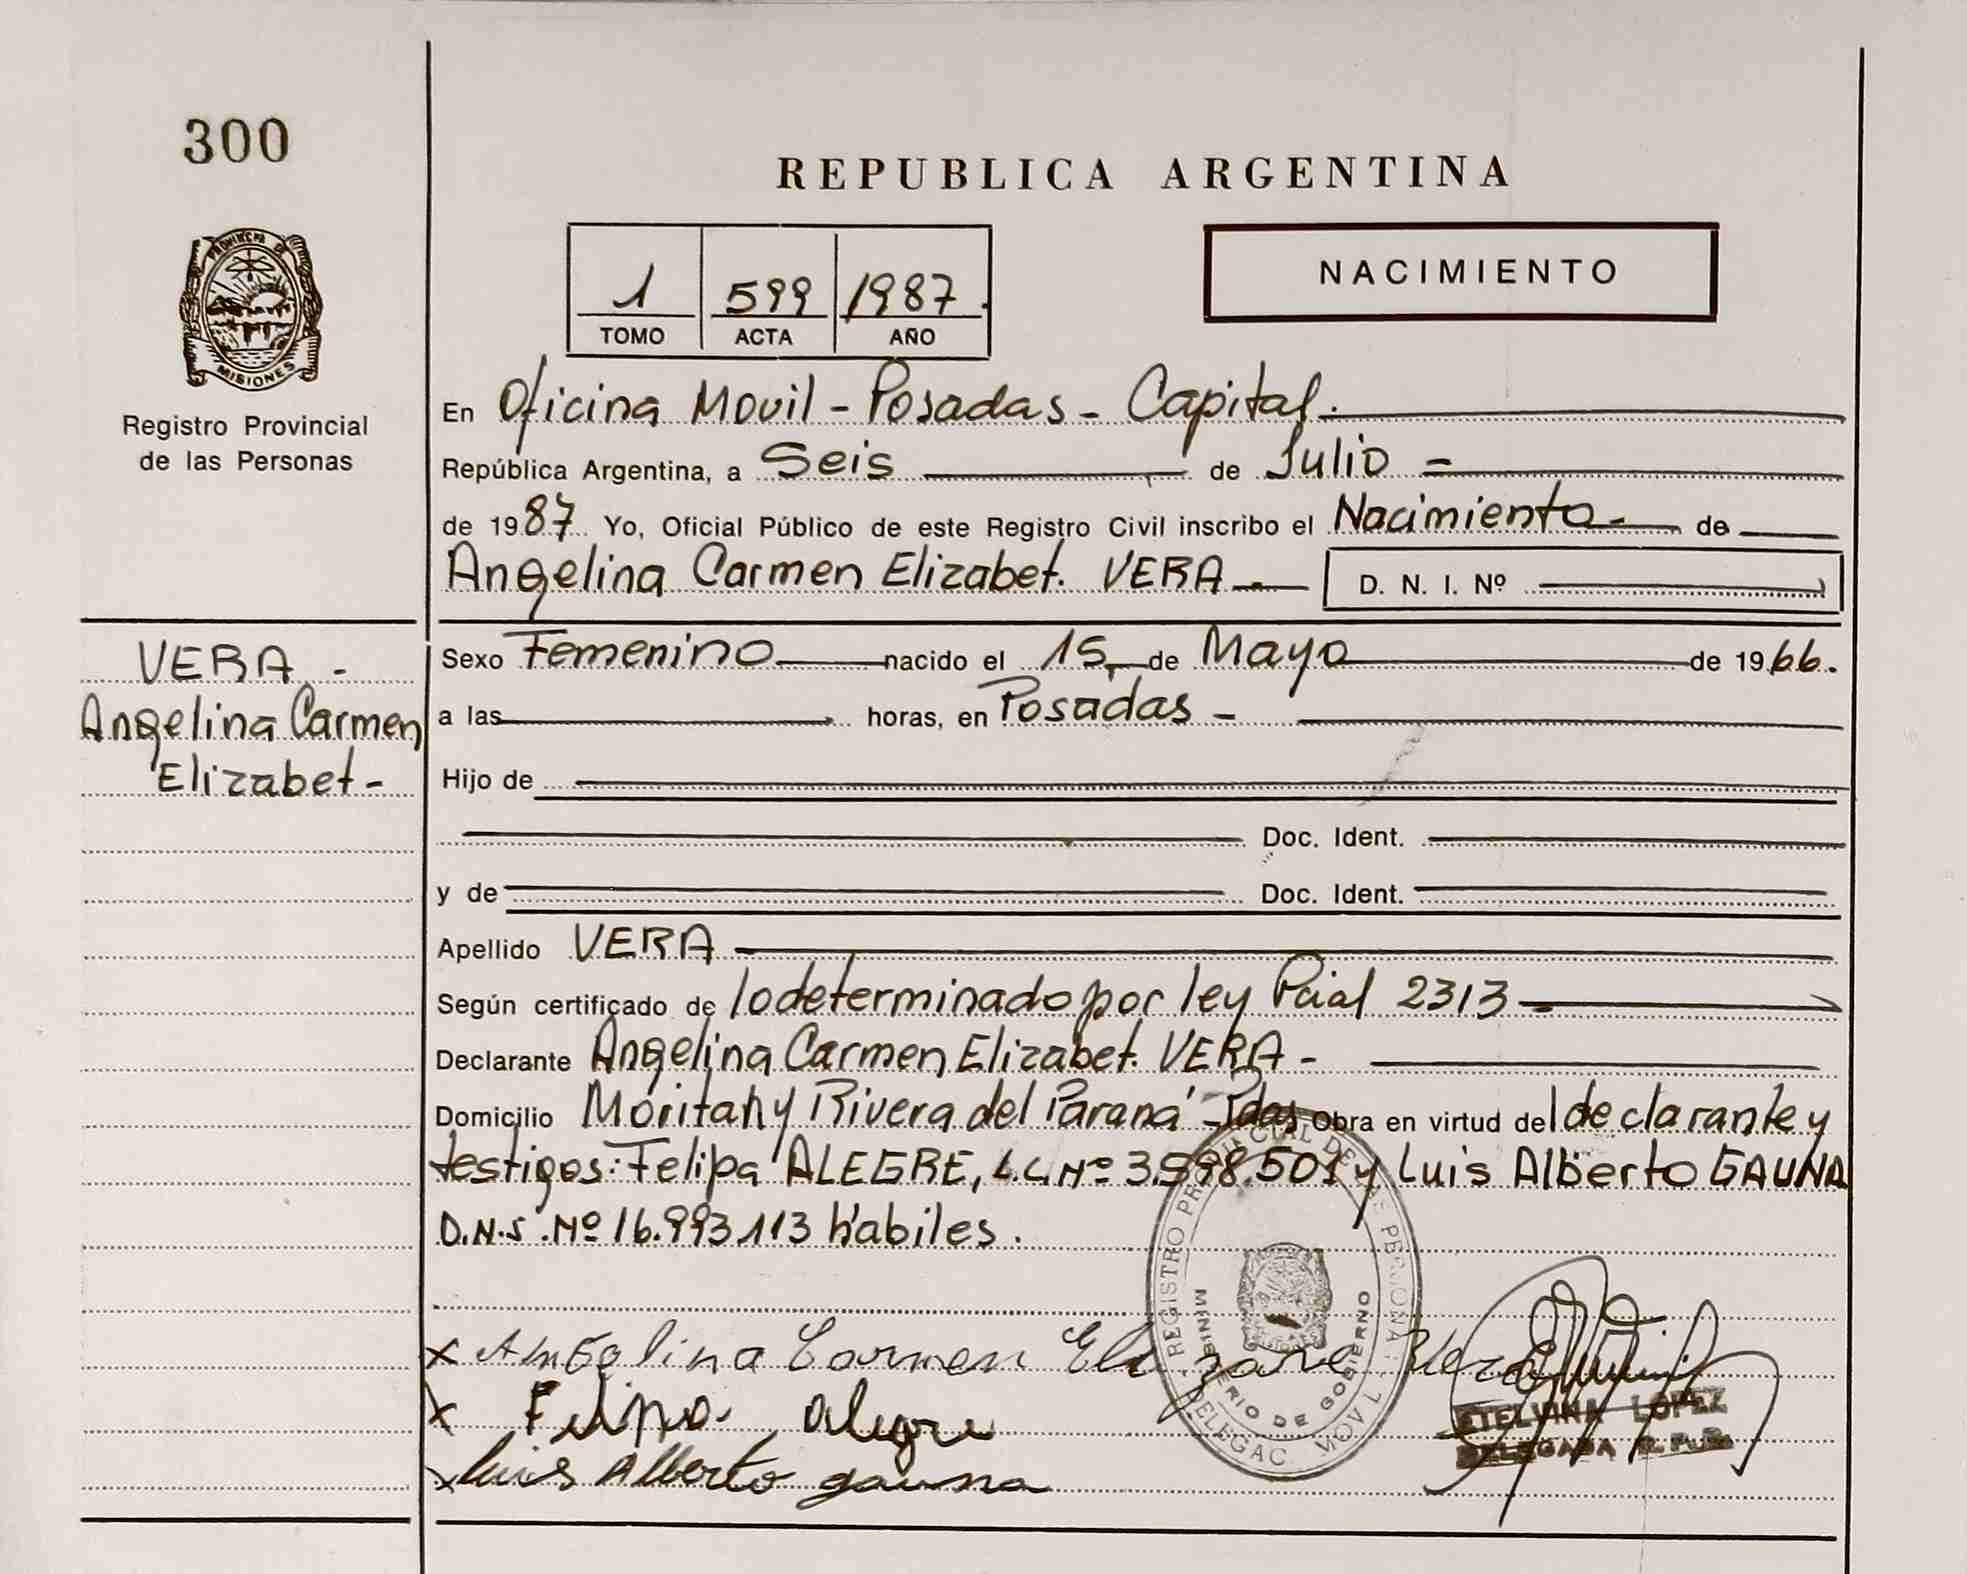 300
PROVINCIA DE
MISIONES
Registro Provincial
de las Personas
REPUBLICA ARGENTINA
1 599 1987.
TOMO ACTA AÑO
NACIMIENTO
En Oficina Movil - Posadas - Capital.
República Argentina, a Seis de Julio -
de 1987 Yo, Oficial Público de este Registro Civil inscribo el Nacimiento de
Angelina Carmen Elizabet. VERA - D. N. I. Nº
VERA -
Angelina Carmen
Elizabet -
Sexo Femenino nacido el 15 de Mayo de 1966.
a las horas, en Posadas -
Hijo de
Doc. Ident.
y de Doc. Ident.
Apellido VERA
Según certificado de lo determinado por ley Pcial 2313 -
Declarante Angelina Carmen Elizabet. VERA -
Domicilio Moritan y Rivera del Paraná - Pdas Obra en virtud del declarante y
testigos: Felipa ALEGRE, L.C. Nº 3.598.501 y Luis Alberto GAUNA
D.N.I. Nº 16.993.113 hábiles.
REGISTRO PROVINCIAL DE LAS PERSONAS
MINISTERIO DE GOBIERNO
DELEGAC. MOVIL
x Angelina Carmen Vera
x Felipa alegre
x Luis Alberto gauna
ETELVINA LOPEZ
DELEGADA R. P. P.